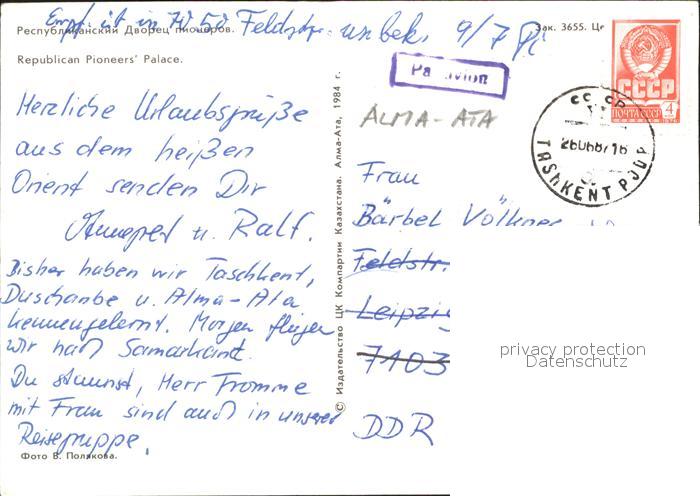 Empf. ist in 70 50 Feldstr. unbek. 9/7
Республиканский Дворец пионеров.
Зак. 3655. Це
Republican Pioneers' Palace.
Par avion
СССР
ПОЧТА СССР 4
СССР
260687 16
TASHKENT PJDP
ALMA-ATA
Herzliche Urlaubsgrüße
aus dem heißen
Orient senden Dir
Annegret u. Ralf.
Bisher haben wir Taschkent,
Duschanbe u. Alma-Ata
kennengelernt. Morgen fliegen
wir nach Samarkand.
Du staunst, Herr Fromme
mit Frau sind auch in unserer
Reisegruppe.
Фото В. Полякова.
© Издательство ЦК Компартии Казахстана. Алма-Ата, 1984 г.
Frau
Bärbel Völkner
Feldstr.
Leipzig
7103
DDR
privacy protection
Datenschutz